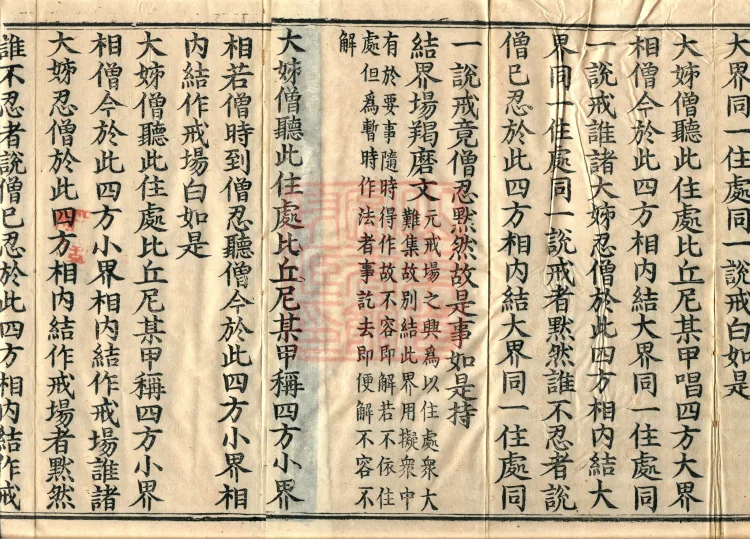 大界同一住處同一說戒白如是
大姊僧聽此住處比丘尼某甲唱四方大界
相僧今於此四方相內結大界同一住處同
一說戒誰諸大姊忍僧於此四方相內結大
界同一住處同一說戒者默然誰不忍者說
僧已忍於此四方相內結大界同一住處同
一說戒竟僧忍默然故是事如是持
結界場羯磨文元戒場之興為以住處衆大
難集故別結此界用擬衆中
有於要事隨時得作故不容即解若不依住
處但為暫時作法者事訖去即便解不容不
解
大姊僧聽此住處比丘尼某甲稱四方小界
相若僧時到僧忍聽僧今於此四方小界相
內結作戒場白如是
大姊僧聽此住處比丘尼某甲稱四方小界
相僧今於此四方小界相內結作戒場誰諸
大姊忍僧於此四方相內結作戒場者默然
誰不忍者說僧已忍於此四方相內結作戒